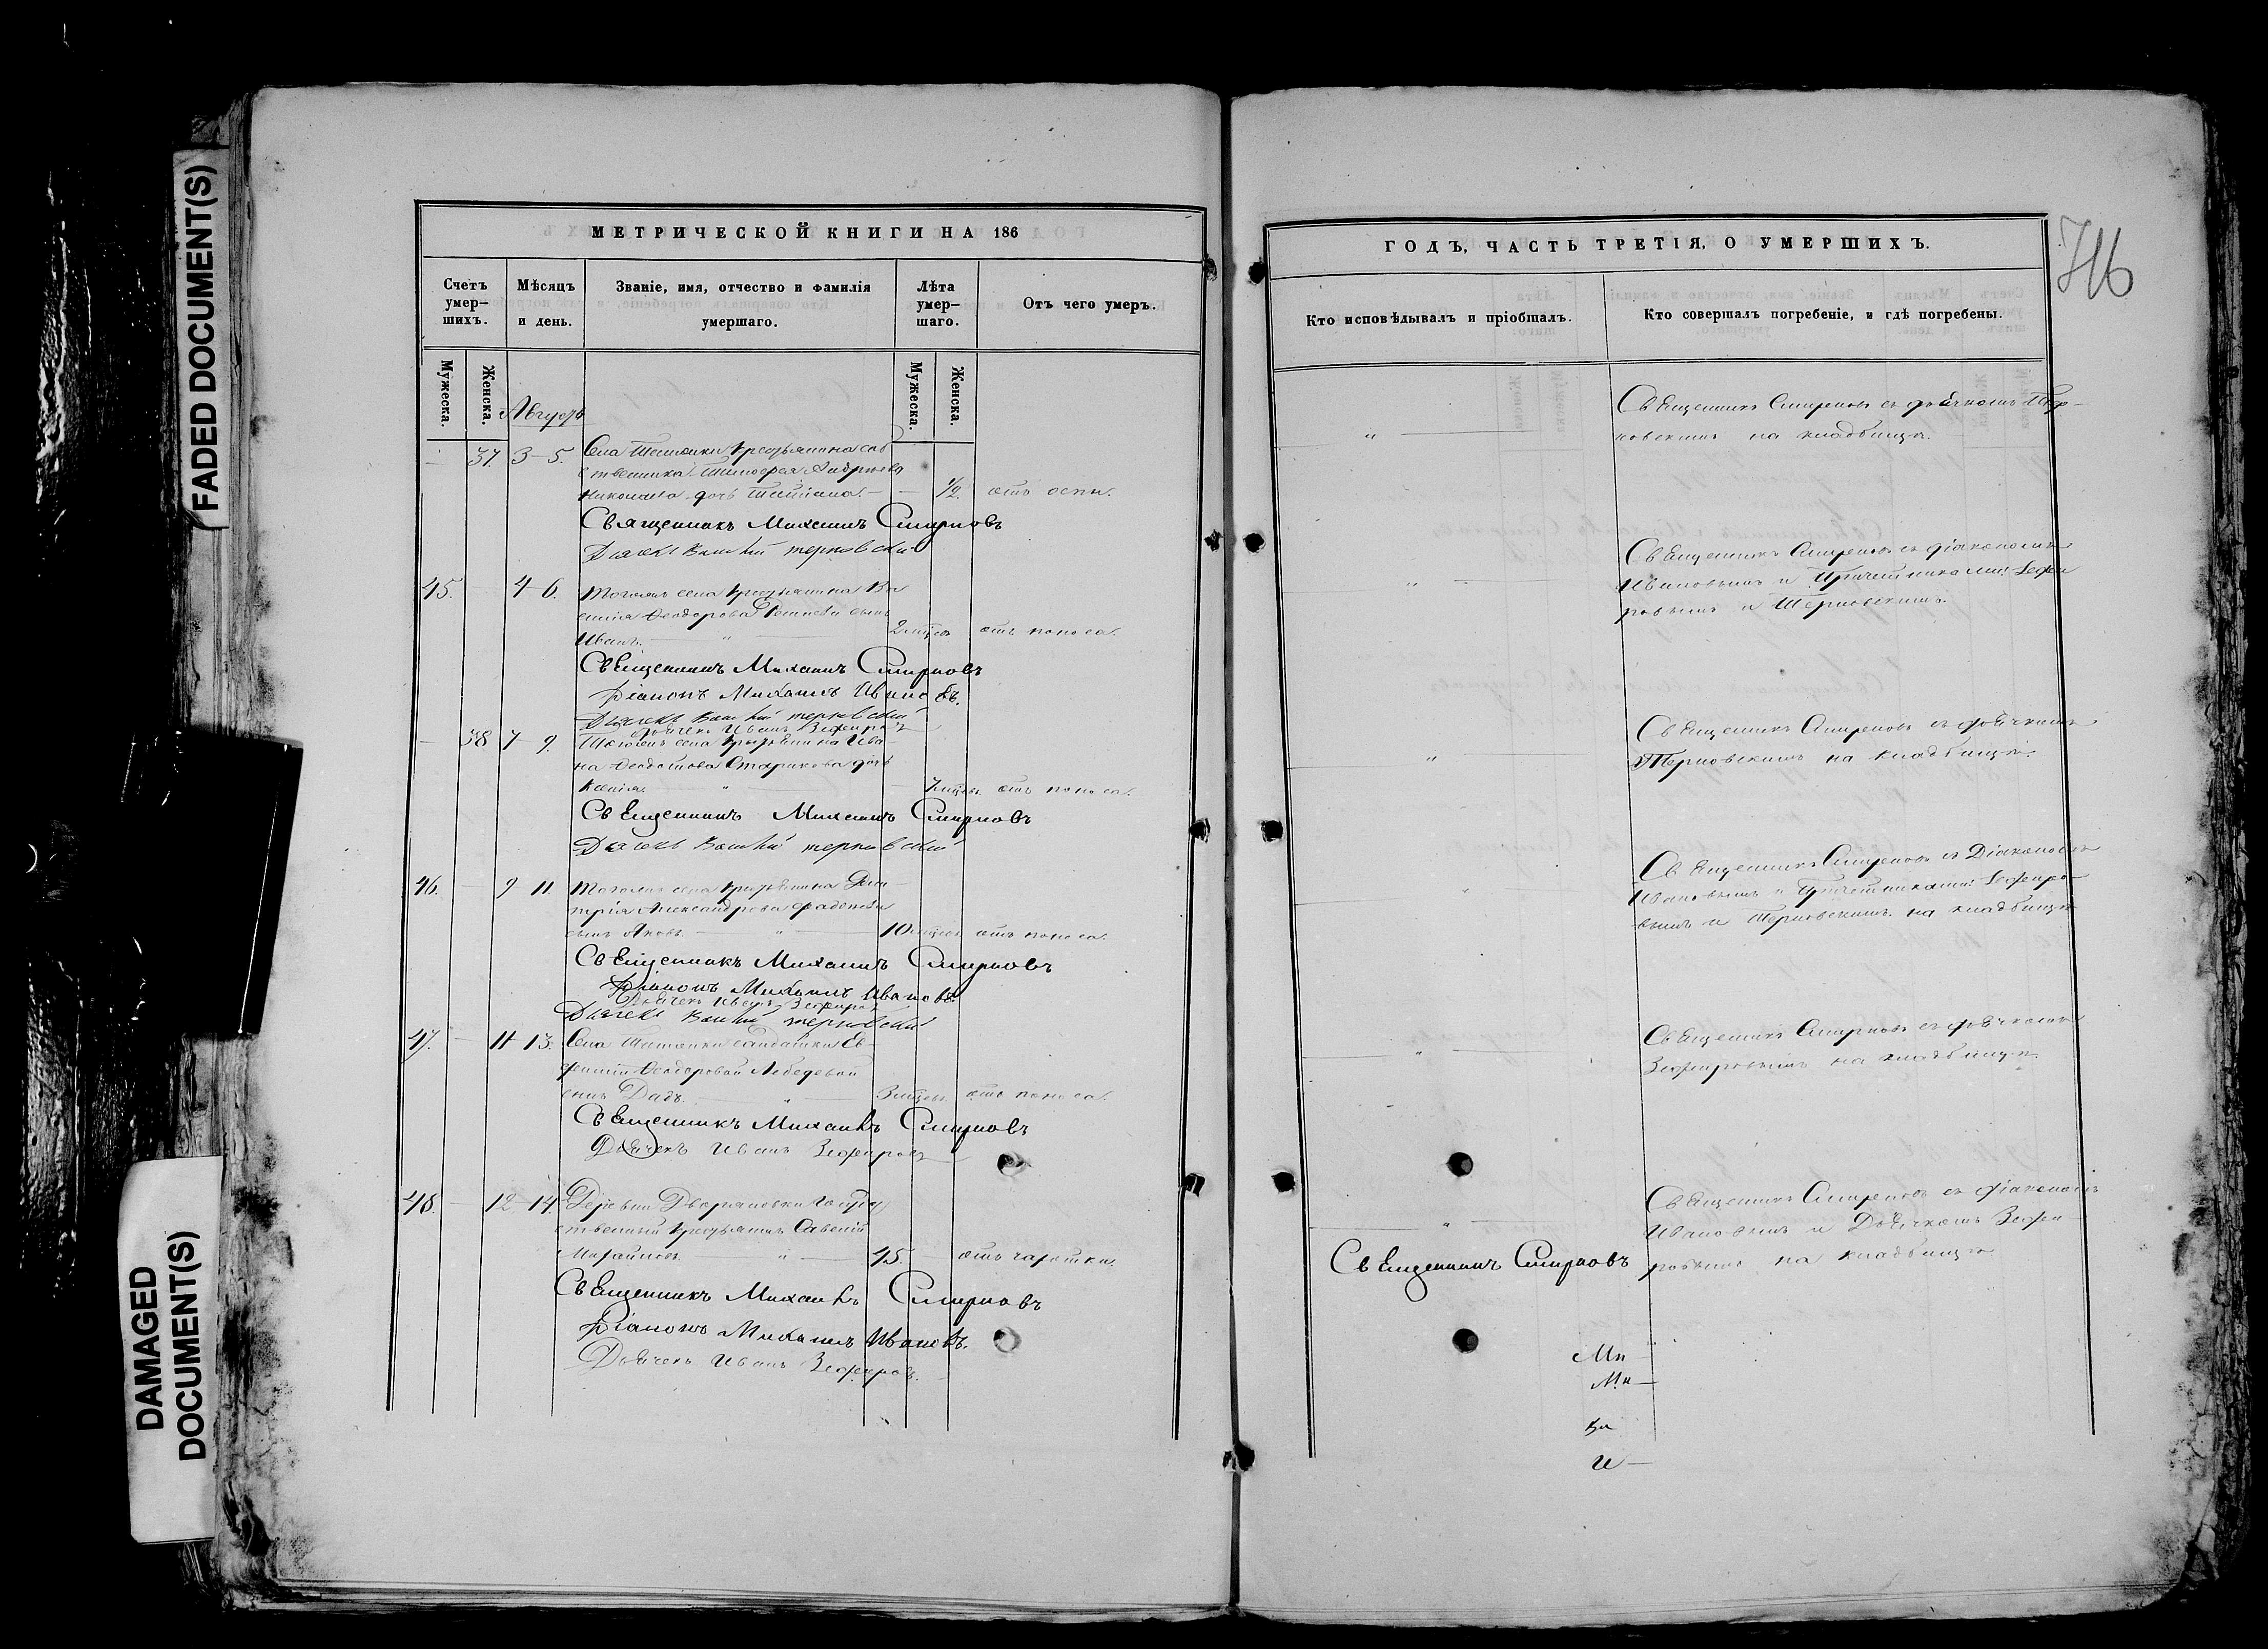 FADED DOCUMENT(S)
DAMAGED
DOCUMENT(S)
МЕТРИЧЕСКОЙ КНИГИ НА 186
Счетъ умер-шихъ.
Мѣсяцъ и день.
Званіе, имя, отчество и фамилія умершаго.
Лѣта умер-шаго.
Отъ чего умеръ.
Мужеска.
Женска.
Августъ
Мужеска.
Женска.
37. 3-5. Села крестьянина соб
ственника
дочь Татіана. — 1/2. отъ оспы.
Священникъ Михаилъ Смирновъ
Дьячекъ Терновскій
45. 4-6. Тогожъ села крестьянина Ва
силія Ѳеодорова сынъ
Иванъ. — " — 2 отъ поноса.
Священникъ Михаилъ Смирновъ
Діаконъ Михаилъ Ивановъ.
Дьячекъ Терновскій
Дьячекъ Иванъ Зефировъ
38 7-9. Тогожъ села крестьянина Ива
на Старикова дочь
Ксенія. — " — 7 отъ поноса.
Священникъ Михаилъ Смирновъ
Дьячекъ Терновскій
46. — 9 11. Тогожъ села крестьянина Дми
трія Александрова
сынъ Яковъ. — " — 10 отъ поноса.
Священникъ Михаилъ Смирновъ
Діаконъ Михаилъ Ивановъ
Дьячекъ Иванъ Зефировъ
Дьячекъ Терновскій
47. — 11 13. Села солдатки Ев
Ѳеодоровой Лебедевой
сынъ — " — 3 отъ поноса.
Священникъ Михаилъ Смирновъ
Дьячекъ Иванъ Зефировъ
48. — 12-14. Деревни Дворяновки Государ
ственный крестьянинъ Савелій
— " — 45. отъ чахотки.
Священникъ Михаилъ Смирновъ
Діаконъ Михаилъ Ивановъ.
Дьячекъ Иванъ Зефировъ.
ГОДЪ, ЧАСТЬ ТРЕТІЯ, О УМЕРШИХЪ.
Кто исповѣдывалъ и пріобщалъ.
Кто совершалъ погребеніе, и гдѣ погребены.
Священникъ Смирновъ съ дьячкомъ Тер-
новскимъ на кладбищѣ.
Священникъ Смирновъ съ діакономъ
Ивановымъ и Причетниками: Зефи
ровымъ и Терновскимъ.
Священникъ Смирновъ съ дьячкомъ
Терновскимъ на кладбищѣ.
Священникъ Смирновъ съ Діакономъ
Ивановымъ и Причетниками: Зефиро-
вымъ и Терновскимъ на кладбищѣ
Священникъ Смирновъ съ дьячкомъ
Зефировымъ на кладбищѣ.
Священникъ Смирновъ съ діакономъ
Ивановымъ и Дьячкомъ Зефи
Священникъ Смирновъ
ровымъ на кладбищѣ
Ми —
Ми —
Ва
И —